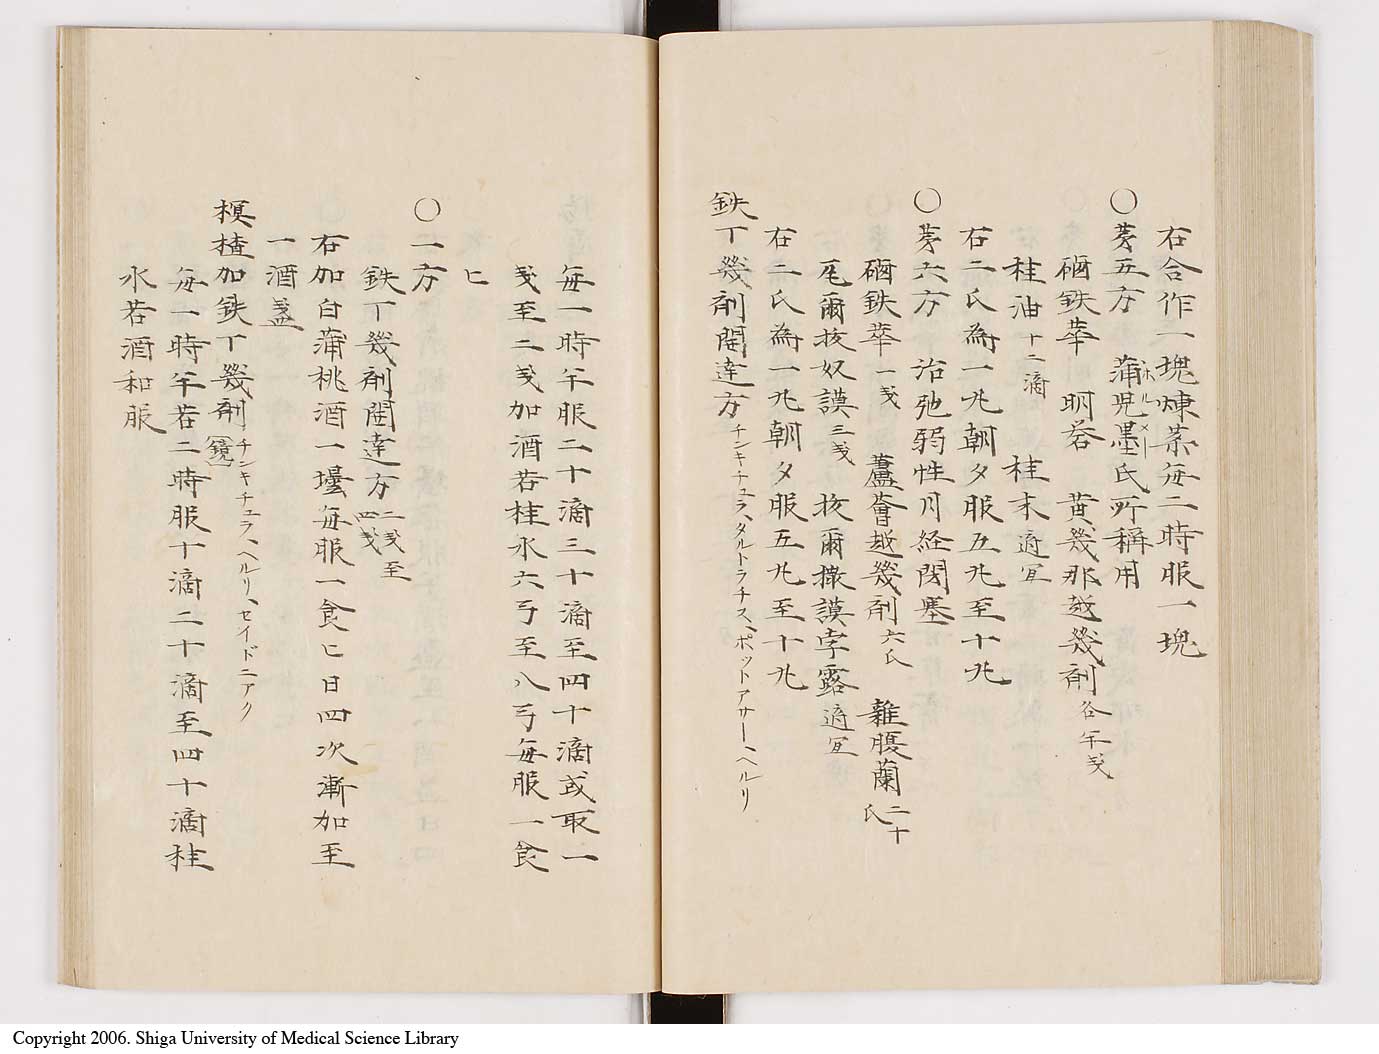 右合作一塊煉茶毎二時服一塊
○第五方 蒲児墨氏所称用
ホルメール
硇鉄華 明礬 黄幾那越幾剤各半戔
桂油十二滴 桂末適宜
右二氏為一丸朝夕服五丸至十丸
○第六方 治弛弱性月経閉塞
硇鉄華一戔 蘆薈越幾剤六氏 雜腹蘭二十氏
尾爾抜奴謨三戔 抜爾撒謨孛露適宜
右二氏為一丸朝夕服五丸至十丸
鉄丁幾剤閏達方チンキチュラ、タルトラチス、ポットアサー、ヘルリ
毎一時半服二十滴三十滴至四十滴或取一
戔至二戔加酒若桂水六弓至八弓毎服一食
匕
○一方
鉄丁幾剤閏達方二戔至四戔
右加白蒲桃酒一壜毎服一食匕日四次漸加至
一酒盞
榠樝加鉄丁幾剤(鏡)チンキチュラ、ヘルリ、セイドニアク
毎一時半若二時服十滴二十滴至四十滴桂
水若酒和服
Copyright 2006. Shiga University of Medical Science Library